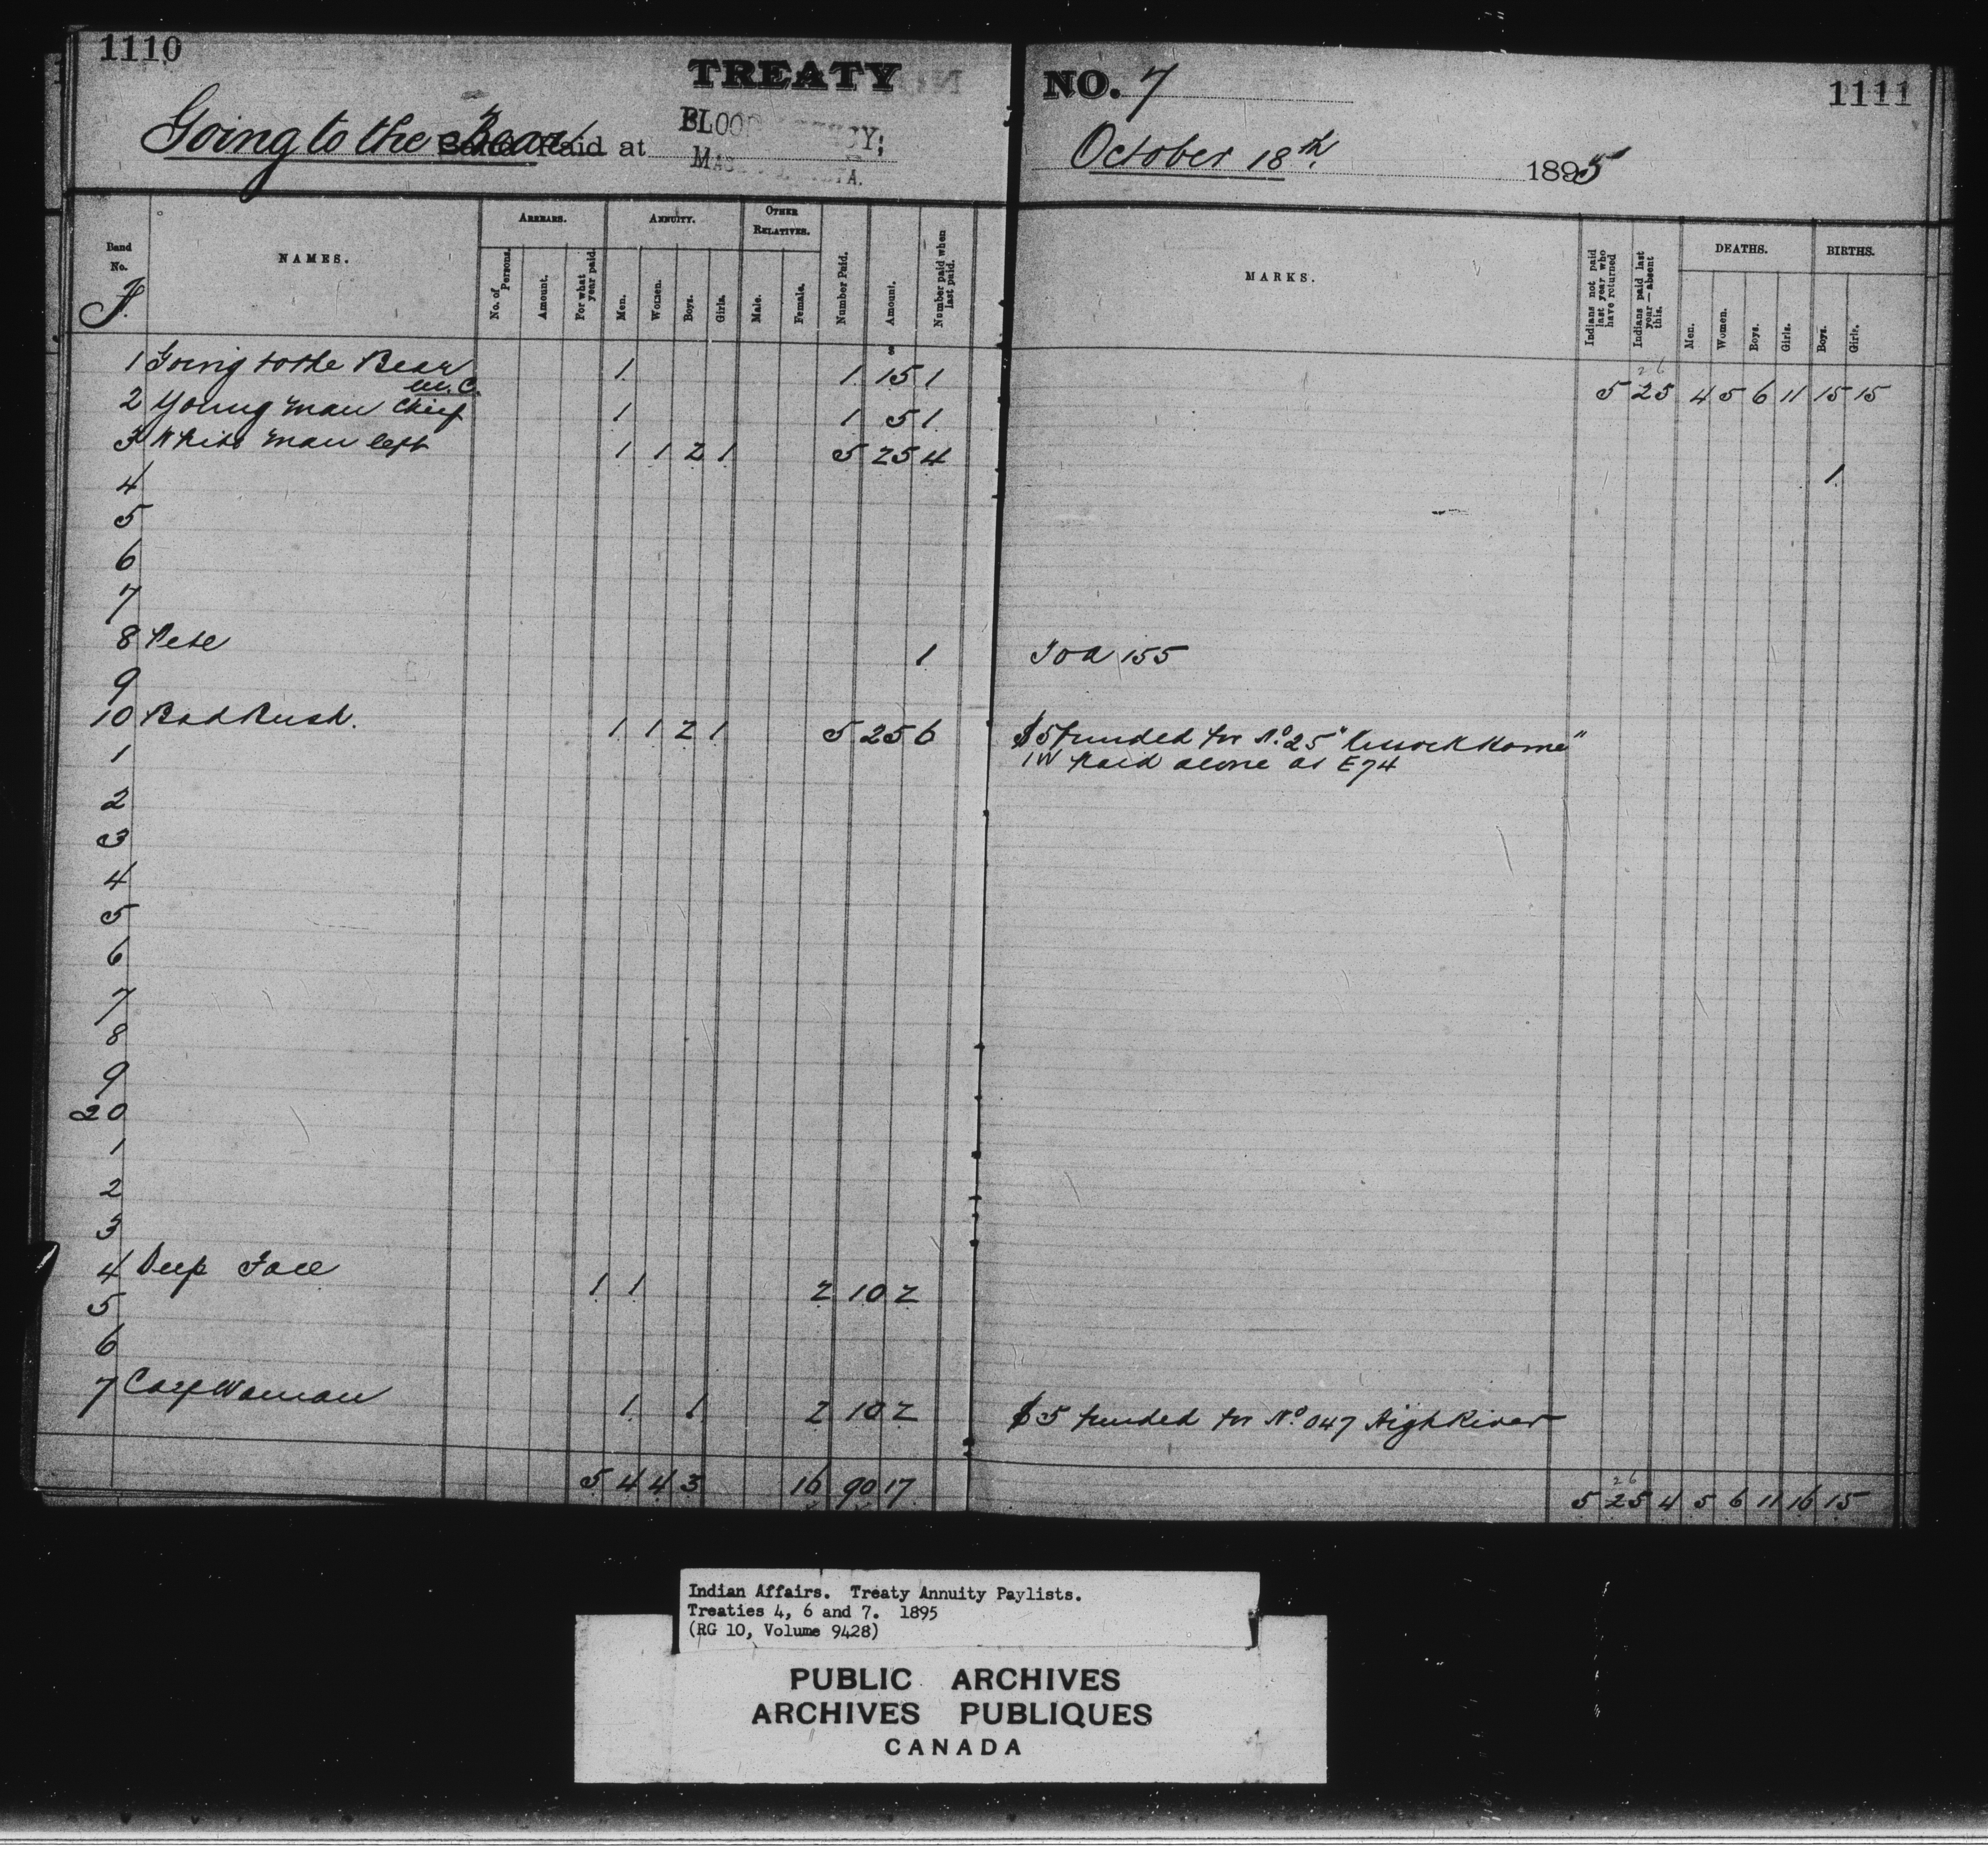 1110
TREATY
NO. 7
1111
Going to the Bear
Paid at
BLOOD AGENCY;
October 18th.
1895
Band No.
NAMES.
ARREARS.
No. of Persons.
Amount.
For what year paid.
ANNUITY.
Men.
Women.
Boys.
Girls.
OTHER RELATIVES.
Male.
Female.
Number Paid.
Amount.
Number paid when last paid.
MARKS.
Indians not paid last year who have returned
Indians paid last year — absent this.
DEATHS.
Men.
Women.
Boys.
Girls.
BIRTHS.
Boys.
Girls.
26
5 25 4 5 6 11 15 15
1 Going to the Bear M.C. 1 1 15 1
2 Young Man Chief 1 1 5 1
3 White Man left 1 1 2 1 5 25 4 1
4
5
6
7
8 Pete 1
155
9
10 1 1 2 1 5 25 6 $5 funded for No. 25
1 1W Paid alone as E74
2
3
4
5
6
7
8
9
20
1
2
3
4 Deep Face 1 1 2 10 2
5
6
7 Woman 1 1 2 10 2 $5 funded for No. 047 High River
5 4 4 3 16 90 17
26
5 25 4 5 6 11 16 15
Indian Affairs. Treaty Annuity Paylists.
Treaties 4, 6 and 7. 1895
(RG 10, Volume 9428)
PUBLIC ARCHIVES
ARCHIVES PUBLIQUES
CANADA